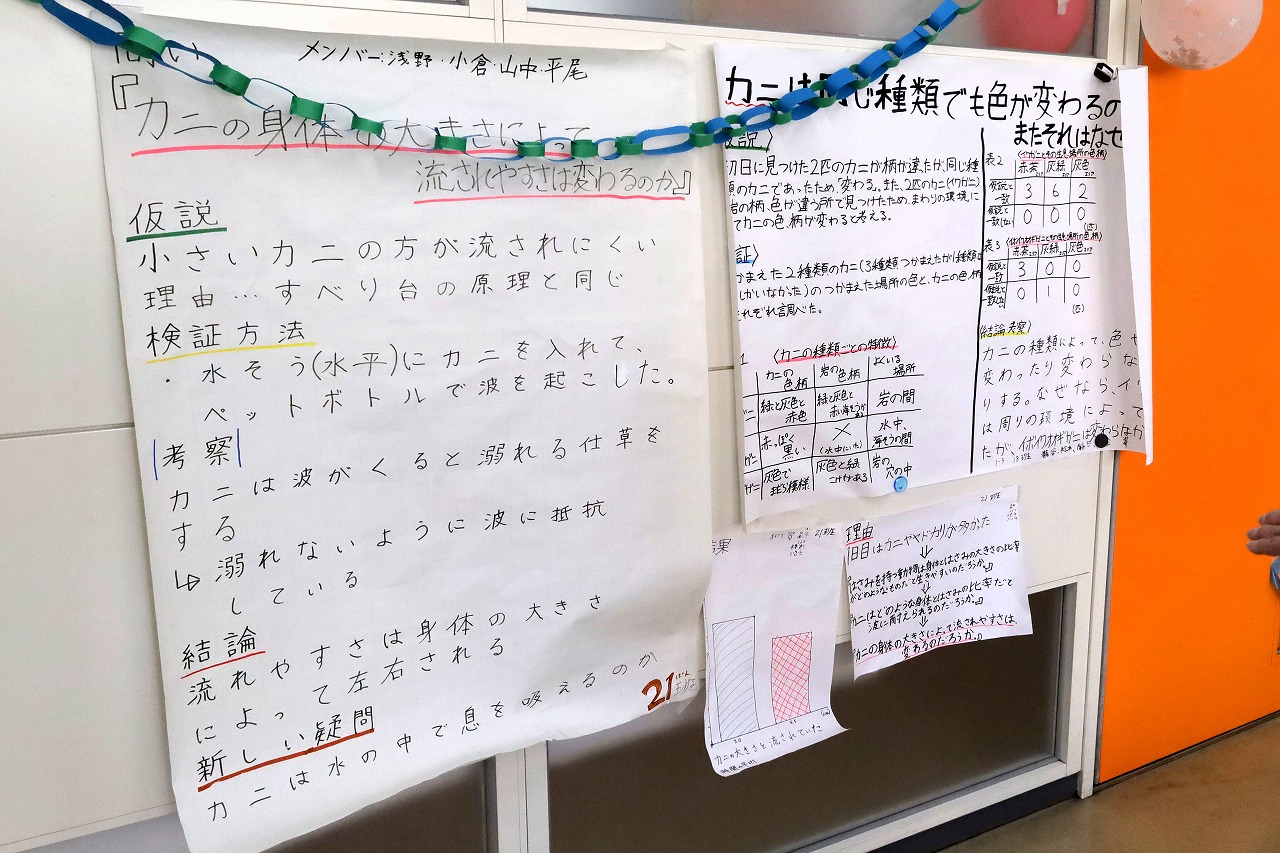 問い
メンバー:浅野・小倉・山中・平尾
『カニの身体の大きさによって
流されやすさは変わるのか』
仮説
小さいカニの方が流されにくい
理由…すべり台の原理と同じ
検証方法
・水そう(水平)にカニを入れて、
ペットボトルで波を起こした。
考察
カニは波がくると溺れる仕草を
する
↳溺れないように波に抵抗
している
結論
流れやすさは身体の大きさ
によって左右される
新しい疑問
カニは水の中で息を吸えるのか
21班
カニは同じ種類でも色が変わるの
またそれはなぜ
仮説〉
初日に見つけた2匹のカニが柄が違ったが、同じ種
類のカニであったため、「変わる」。また、2匹のカニ(イワガニ)
岩の柄、色が違う所で見つけたため、まわりの環境に
てカニの色、柄が変わると考える。
証〉
かまえた2種類のカニ(3種類つかまえたが1種類は
しかいなかった)のつかまえた場所の色と、カニの色柄
それぞれ調べた。
1 〈カニの種類ごとの特徴〉
カニの色柄 岩の色柄 よくいる場所
ガニ 緑と灰色と赤色 緑と灰色と 岩の間
ガニ 赤っぽく黒い ×(水中にいた) 水中、海そうの間
ガニ 灰色でまだら模様 灰色と緑 こけがある 岩の穴の中
表2
赤茶 灰緑 灰色
仮説と一致 3 6 2
仮説と一致しない 0 0 0
(匹)
表3
赤茶 灰緑 灰色
仮説と一致 3 0 0
仮説と一致しない 0 1 0
(匹)
結論 考察〉
カニの種類によって、色や
変わったり変わらな
りする。なぜなら、イワ
は周りの環境によって
たが、イボイワオウギガニは変わらなか
結果
21班
カニの大きさと流されていた
21班
理由
1日目はカニやヤドカリが多かった
↓
『はさみを持つ動物は身体とはさみの大きさの比率
がどのようなものだと生きやすいのだろうか。』
↓
『カニはどのような身体とはさみの比率だと
波に耐えられるのだろうか。』
↓
『カニの身体の大きさによって流されやすさは
変わるのだろうか。』